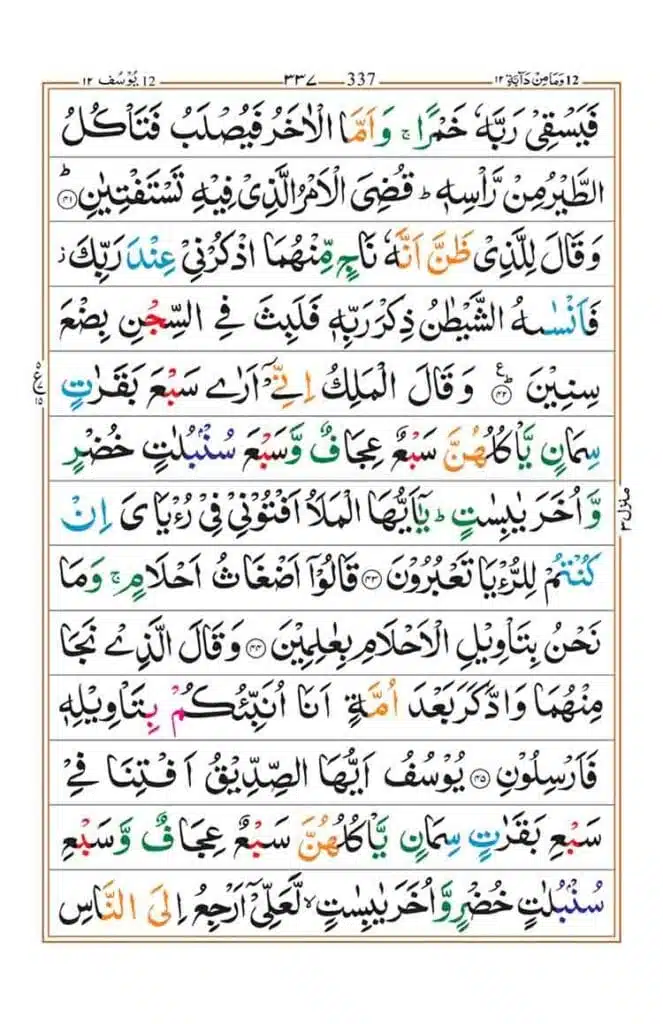 وَمَا مِنْ دَآبَّةٍ ١٢ 12 337 ٣٣٧ يُوْسُف ١٢ 12
فَيَسْقِىْ رَبَّهٗ خَمْرًا ۚ وَاَمَّا الْاٰخَرُ فَيُصْلَبُ فَتَاْكُلُ
الطَّيْرُ مِنْ رَّاْسِهٖ ؕ قُضِىَ الْاَمْرُ الَّذِىْ فِيْهِ تَسْتَفْتِيٰنِ ؕ ﴿۴۱﴾
وَقَالَ لِلَّذِىْ ظَنَّ اَنَّهٗ نَاجٍ مِّنْهُمَا اذْكُرْنِىْ عِنْدَ رَبِّكَ ز
فَاَنْسٰىهُ الشَّيْطٰنُ ذِكْرَ رَبِّهٖ فَلَبِثَ فِى السِّجْنِ بِضْعَ
سِنِيْنَ ؕ ﴿۴۲﴾ ع وَقَالَ الْمَلِكُ اِنِّىْۤ اَرٰى سَبْعَ بَقَرٰتٍ
سِمَانٍ يَّاْكُلُهُنَّ سَبْعٌ عِجَافٌ وَّسَبْعَ سُنْۢبُلٰتٍ خُضْرٍ
وَّاُخَرَ يٰبِسٰتٍ ؕ يٰۤاَيُّهَا الْمَلَاُ اَفْتُوْنِىْ فِىْ رُءْيَاىَ اِنْ
كُنْتُمْ لِلرُّءْيَا تَعْبُرُوْنَ ﴿۴۳﴾ قَالُوْۤا اَضْغَاثُ اَحْلَامٍ ۚ وَمَا
نَحْنُ بِتَاْوِيْلِ الْاَحْلَامِ بِعٰلِمِيْنَ ﴿۴۴﴾ وَقَالَ الَّذِىْ نَجَا
مِنْهُمَا وَادَّكَرَ بَعْدَ اُمَّةٍ اَنَا اُنَبِّئُكُمْ بِتَاْوِيْلِهٖ
فَاَرْسِلُوْنِ ﴿۴۵﴾ يُوْسُفُ اَيُّهَا الصِّدِّيْقُ اَفْتِنَا فِىْ
سَبْعِ بَقَرٰتٍ سِمَانٍ يَّاْكُلُهُنَّ سَبْعٌ عِجَافٌ وَّسَبْعِ
سُنْۢبُلٰتٍ خُضْرٍ وَّاُخَرَ يٰبِسٰتٍ ۙ لَّعَلِّىْۤ اَرْجِعُ اِلَى النَّاسِ
منزل ٣